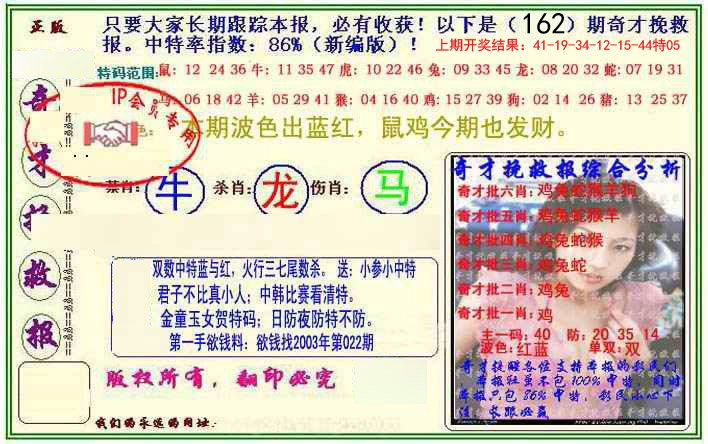 正版
只要大家长期跟踪本报，必有收获！以下是（162）期奇才挽救
报。中特率指数：86%（新编版）！
上期开奖结果：41-19-34-12-15-44特05
特码范围:鼠：12 24 36 牛：11 35 47 虎：10 22 46 兔：09 33 45 龙：08 20 32 蛇：07 19 31
06 18 42 羊：05 29 41 猴：04 16 40 鸡：15 27 39 狗：02 14 26 猪：13 25 37
IP会员专用
本期波色出蓝红，鼠鸡今期也发财。
奇
才
救
报
禁肖：牛 杀肖：龙 伤肖：马
双数中特蓝与红，火行三七尾数杀。 送：小参小中特
君子不比真小人；中韩比赛看清特。
金童玉女贺特码；日防夜防特不防。
第一手欲钱料：欲钱找2003年第022期
版权所有，翻印必究
我们的永远的网址：
奇才挽救报综合分析
奇才批六肖：鸡兔蛇猴羊狗
奇才批五肖：鸡兔蛇猴羊
奇才批四肖：鸡兔蛇猴
奇才批三肖：鸡兔蛇
奇才批二肖：鸡兔
奇才批一肖：鸡
主一码：40 防：20 35 14
波色：红蓝 单双：双
奇才提醒各位支持本报的彩民们
本报但虽不包100%中特，同时
本报只包86%中特，彩民小心下
注，长跟必赢